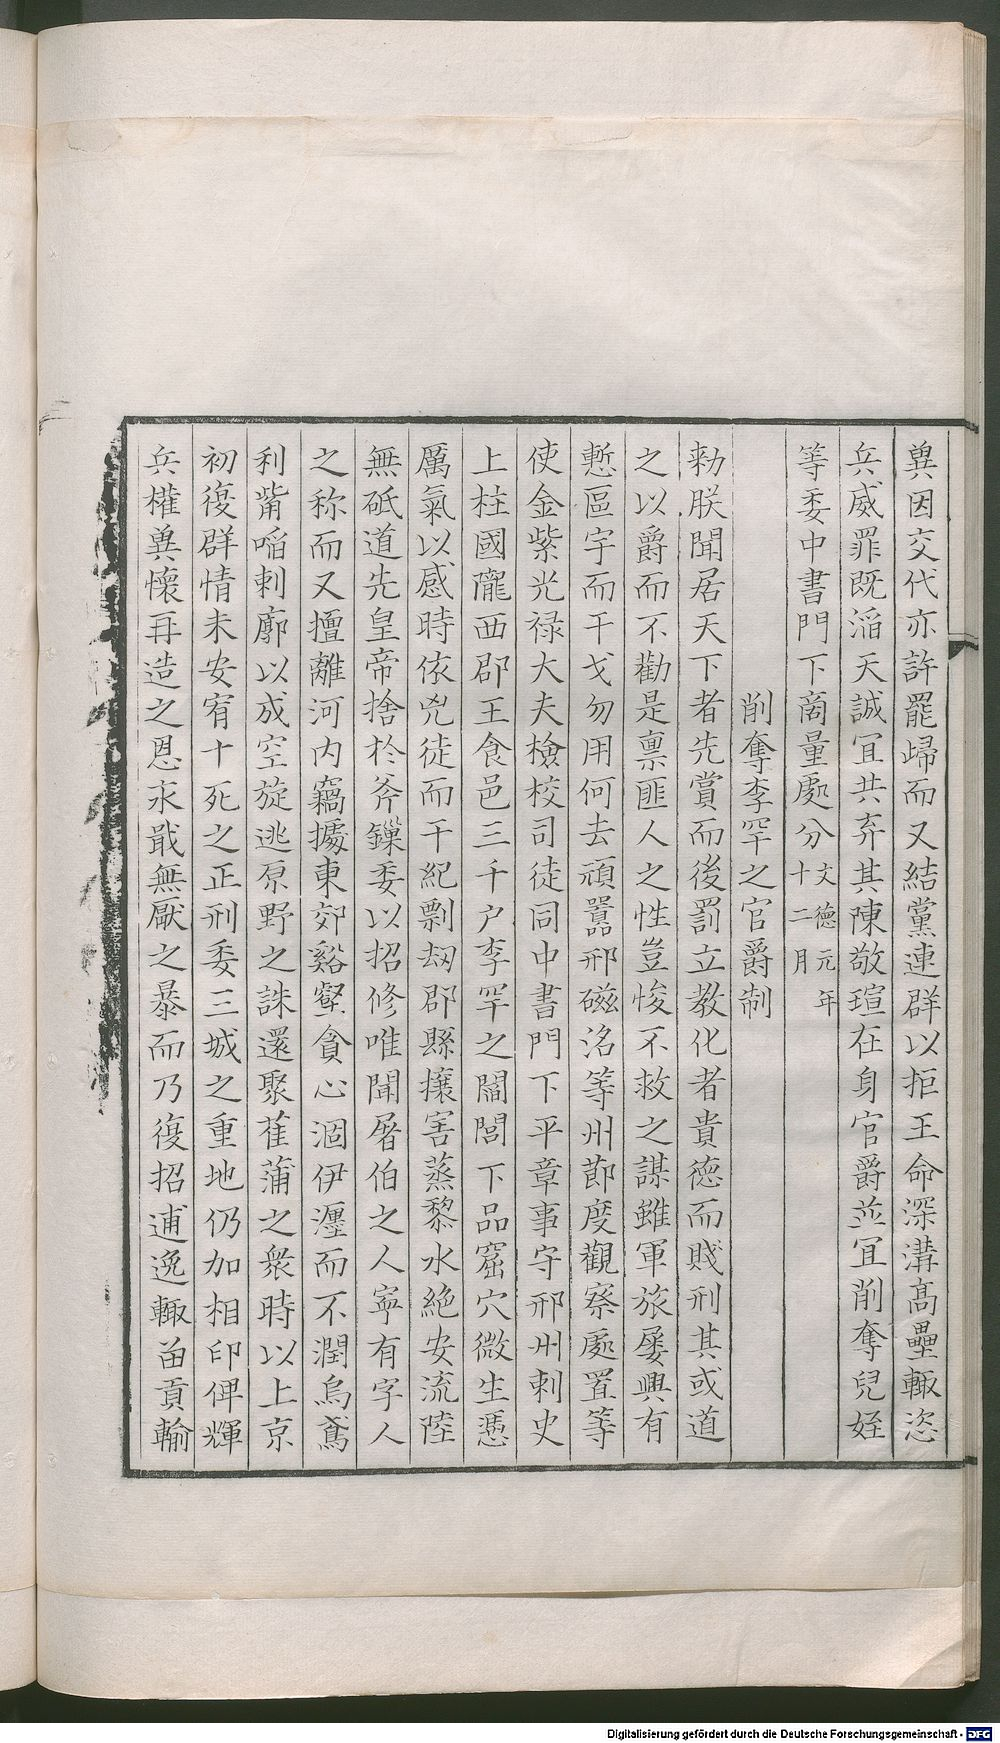 兾因交代亦許罷歸而又結黨連群以拒王命深溝高壘輙恣
兵威罪既滔天誠宜共弃其陳敬瑄在身官爵並宜削奪兒姪
等委中書門下商量處分文德元年十二月
削奪李罕之官爵制
勑朕聞居天下者先賞而後罰立教化者貴德而賤刑其或道
之以爵而不勸是禀匪人之性豈悛不救之謀雖軍旅屡興有
慙區宇而干戈勿用何去頑嚚邢磁洺等州節度觀察處置等
使金紫光禄大夫檢校司徒同中書門下平章事守邢州刺史
上柱國隴西郡王食邑三千户李罕之閭閻下品窟穴微生憑
厲氣以感時依兇徒而干紀剽刼郡縣攘害蒸黎水絶安流陸
無砥道先皇帝捨於斧鑕委以招修唯聞屠伯之人寧有字人
之称而又擅離河内竊據東郊谿壑貪心涸伊瀍而不潤烏鳶
利觜啗剌廓以成空旋逃原野之誅還聚萑蒲之衆時以上京
初復群情未安宥十死之正刑委三城之重地仍加相印俾輝
兵權兾懐再造之恩永戢無厭之暴而乃復招逋逸輙啚貢輸
Digitalisierung gefördert durch die Deutsche Forschungsgemeinschaft - DFG